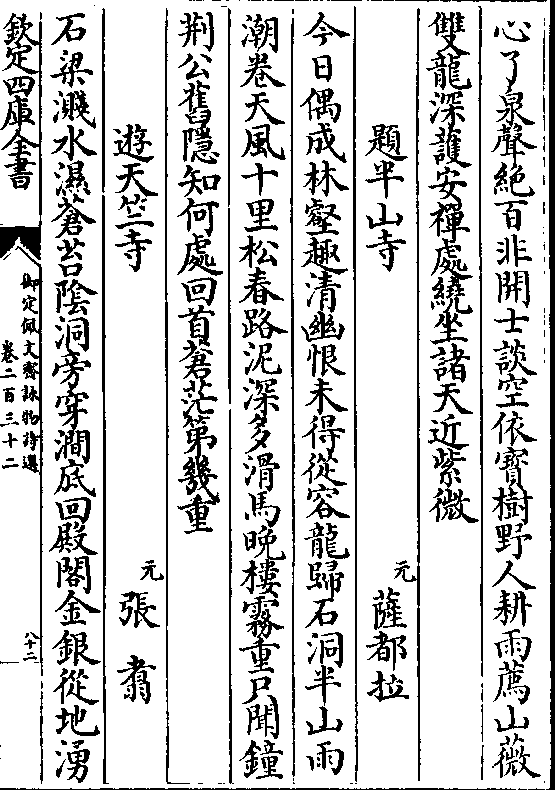 心了泉聲絶百非開士談空依寳樹野人耕雨薦山薇
雙龍深護安禪處繞坐諸天近紫微
題半山寺
元薩都拉
今日偶成林壑趣清幽恨未得從容龍歸石洞半山雨
潮卷天風十里松春路泥深多滑馬晩樓霧重只聞鐘
荆公舊隠知何處回首蒼茫第幾重
遊天竺寺
元張翥
石梁濺水濕蒼苔陰洞旁穿澗底回殿閣金銀從地湧
欽定四庫全書
御定佩文齋詠物詩選
卷二百三十二
八十二